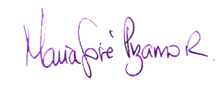 María José Pizarro R.